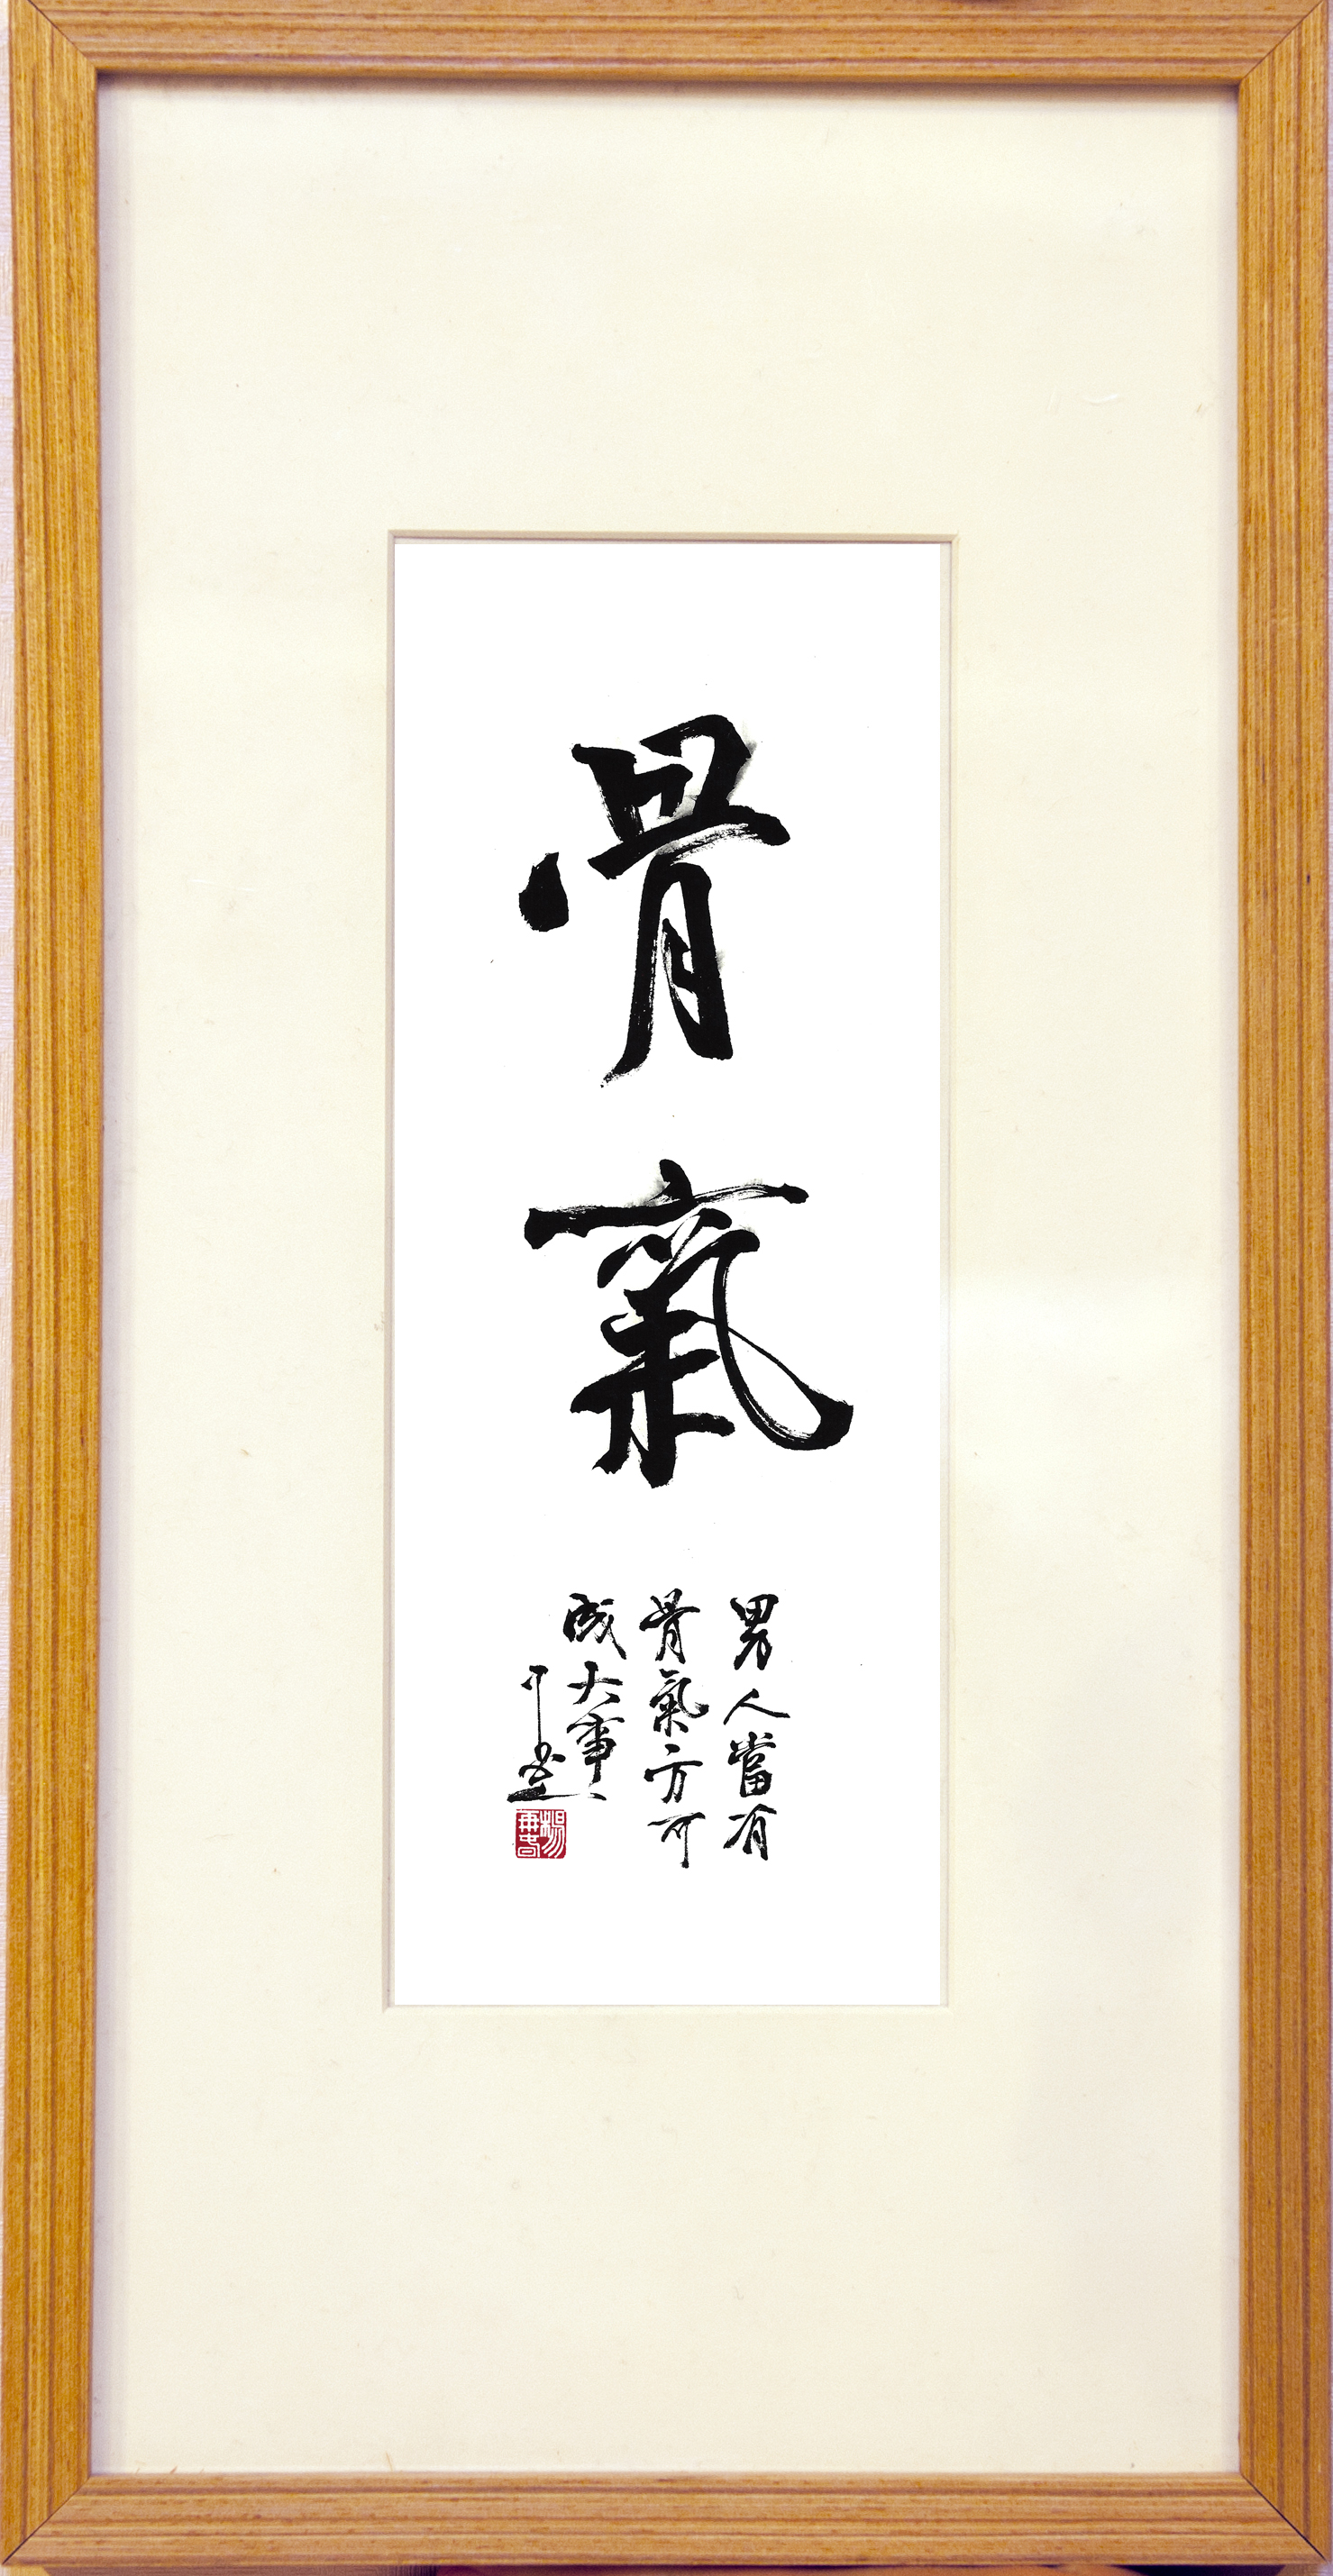 骨氣
男人當有
骨氣方可
成大事